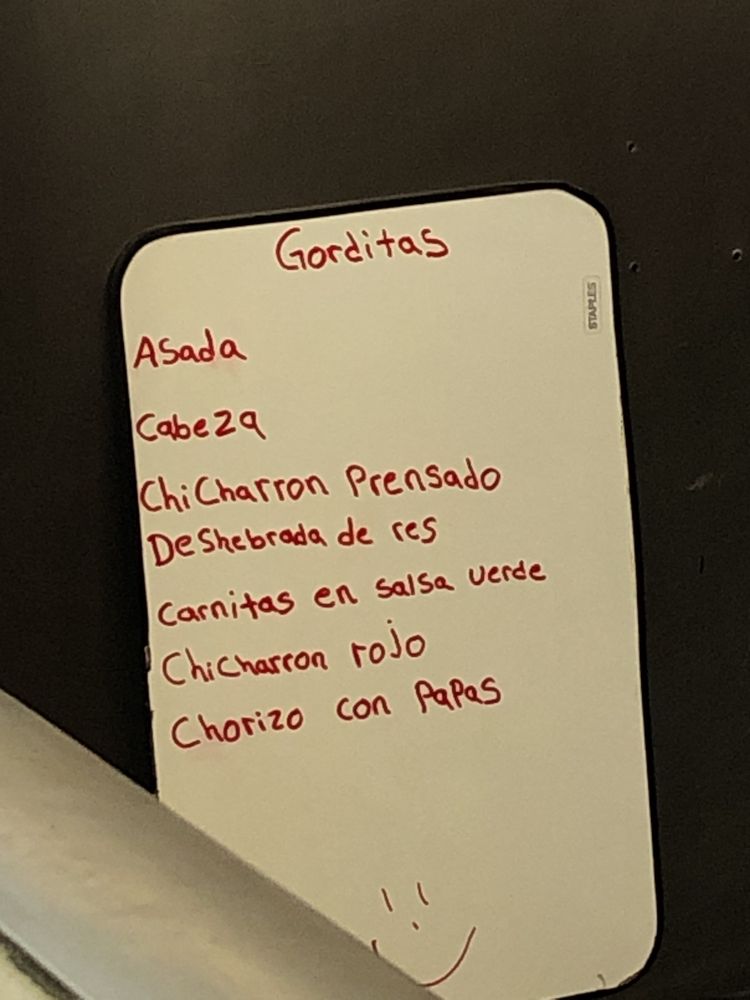 Gorditas
STAPLES
Asada
Cabeza
Chicharron Prensado
Deshebrada de res
Carnitas en salsa verde
Chicharron rojo
Chorizo con Papas